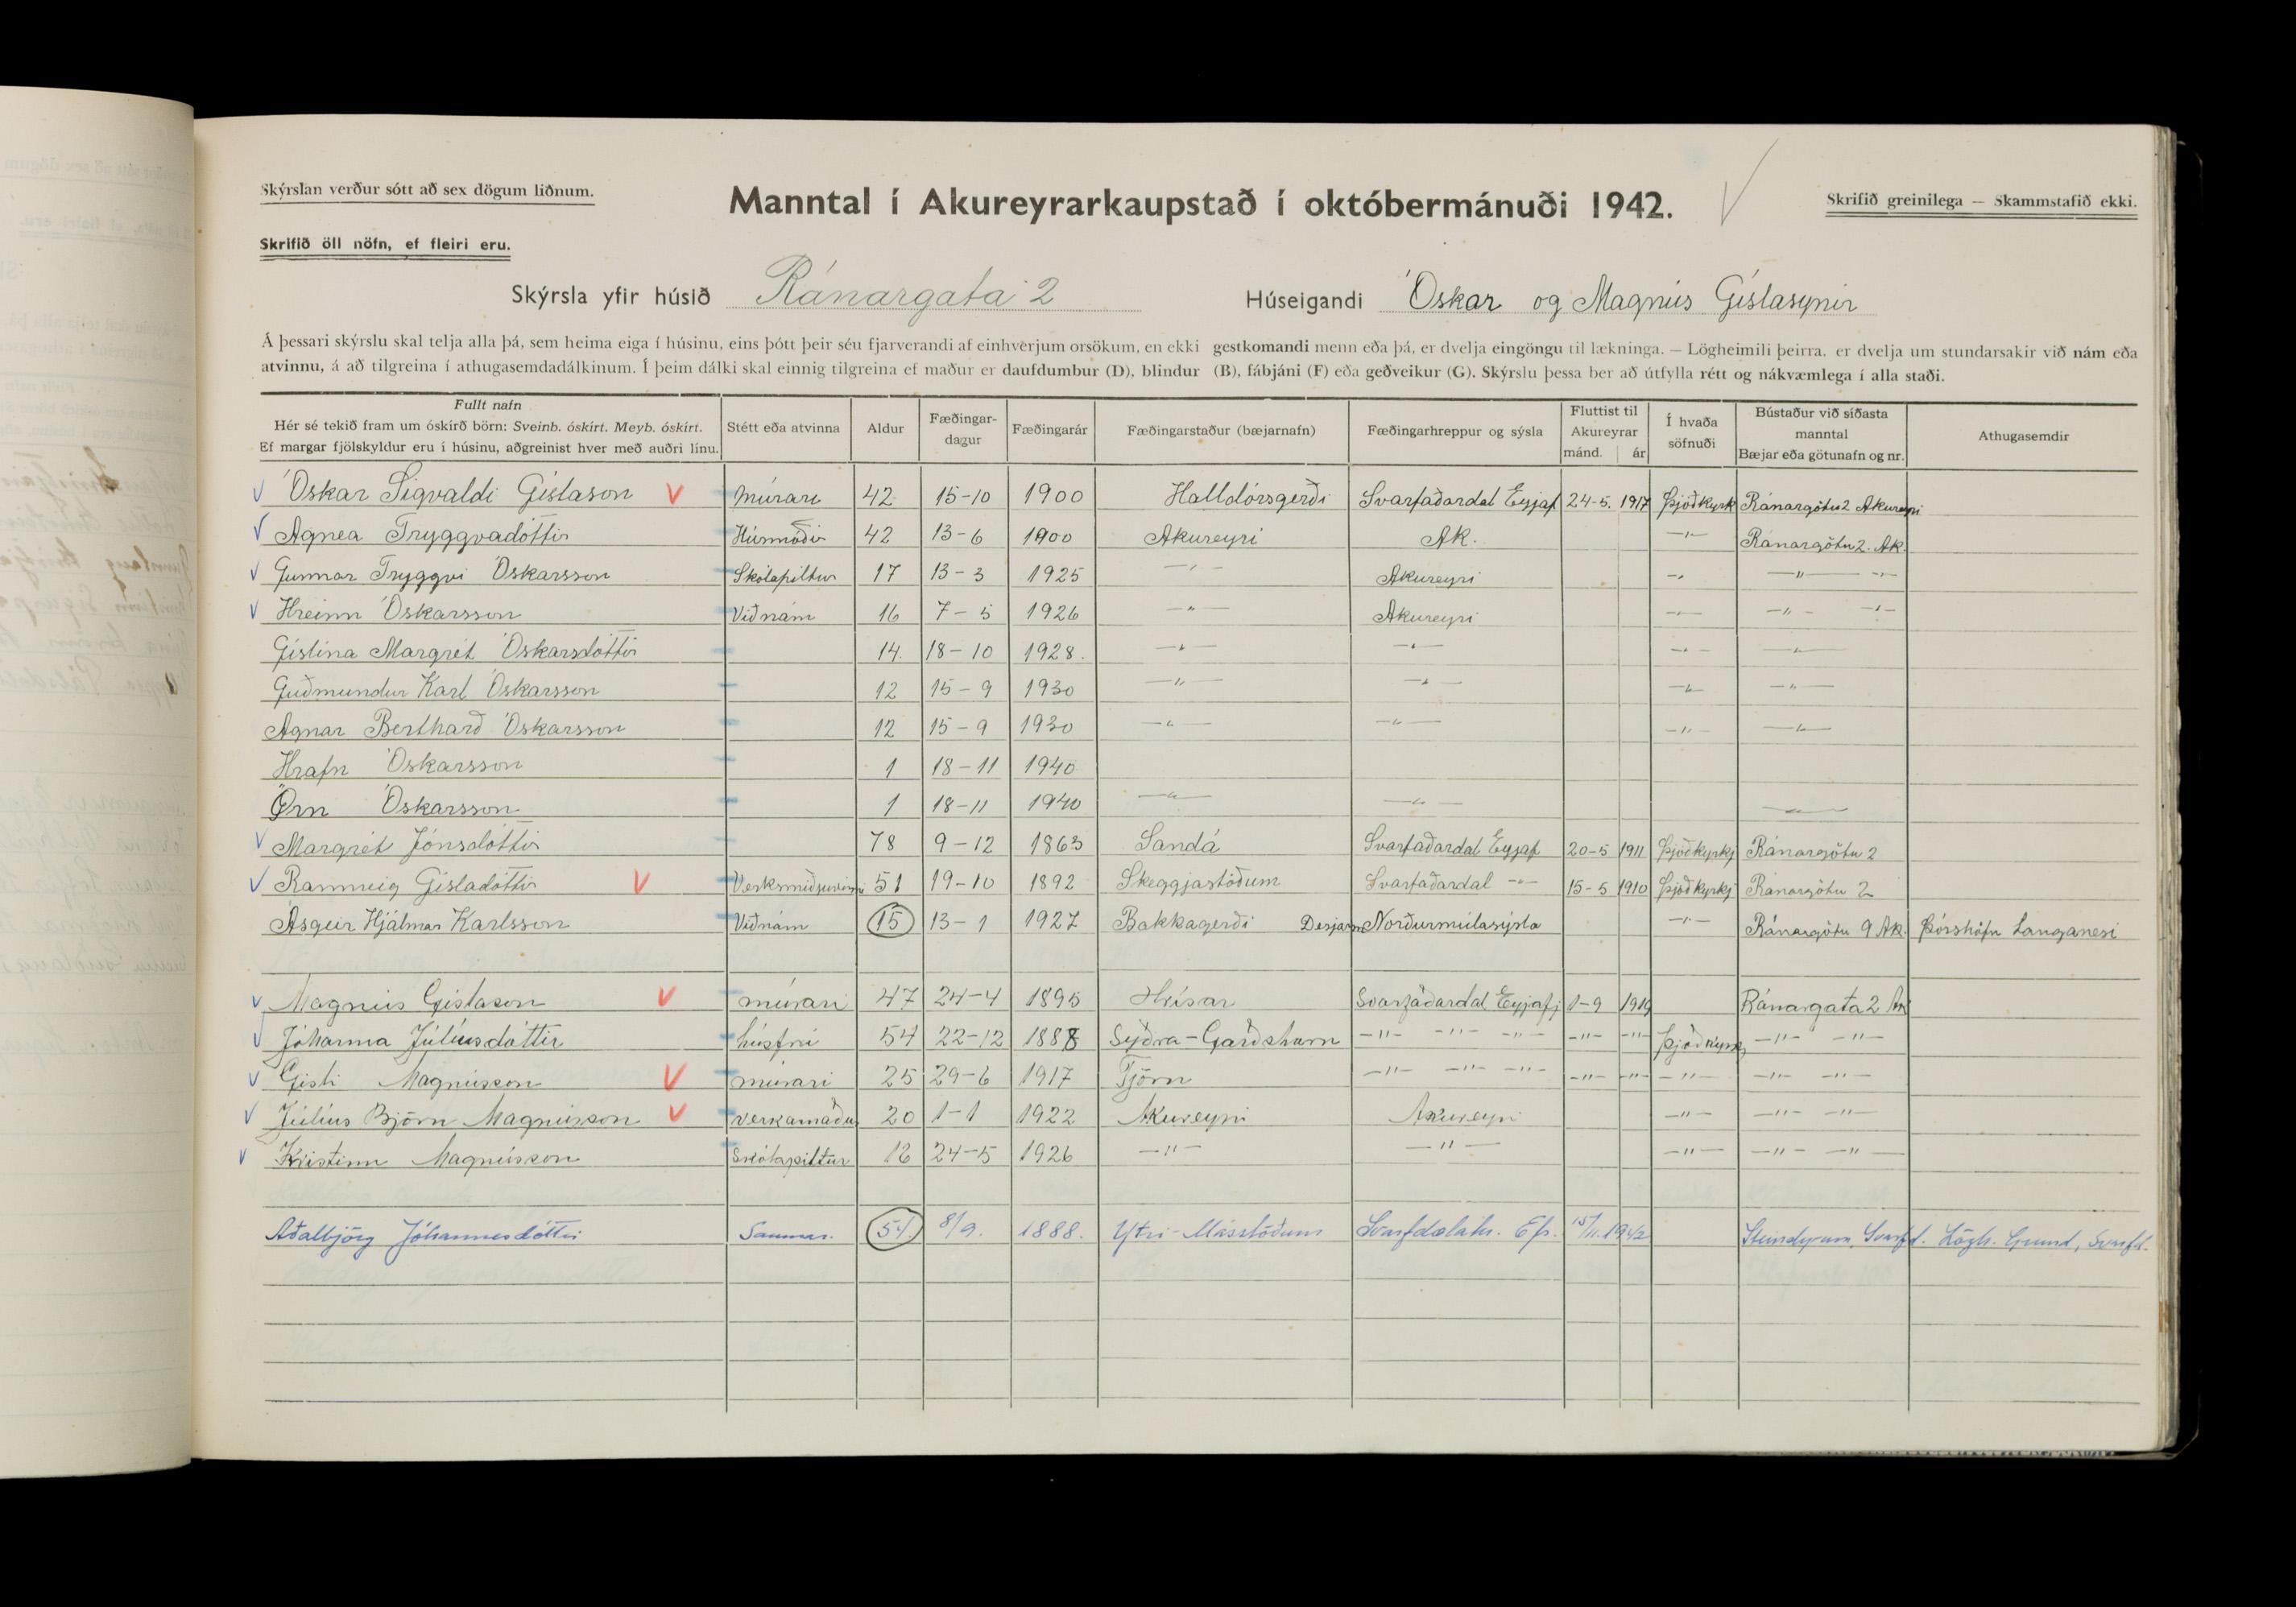 Skýrslan verður sótt að sex dögum liðnum.
Manntal í Akureyrarkaupstað í októbermánuði 1942.
Skrifið greinilega — Skammstafið ekki.
Skrifið öll nöfn, ef fleiri eru.
Skýrsla yfir húsið Ránargata 2 Húseigandi Óskar og Magnús Gíslasynir
Á þessari skýrslu skal telja alla þá, sem heima eiga í húsinu, eins þótt þeir séu fjarverandi af einhverjum orsökum, en ekki gestkomandi menn eða þá, er dvelja eingöngu til lækninga. — Lögheimili þeirra. er dvelja um stundarsakir við nám eða
atvinnu, á að tilgreina í athugasemdadálkinum. Í þeim dálki skal einnig tilgreina ef maður er daufdumbur (D), blindur (B), fábjáni (F) eða geðveikur (G). Skýrslu þessa ber að útfylla rétt og nákvæmlega í alla staði.
Fullt nafn
Hér sé tekið fram um óskírð börn: Sveinb. óskírt. Meyb. óskírt.
Ef margar fjölskyldur eru í húsinu, aðgreinist hver með auðri línu.
Stétt eða atvinna
Aldur
Fæðingar-
dagur
Fæðingarár
Fæðingarstaður (bæjarnafn)
Fæðingarhreppur og sýsla
Fluttist til
Akureyrar
mánd. ár
Í hvaða
söfnuði
Bústaður við síðasta
manntal
Bæjar eða götunafn og nr.
Athugasemdir
Óskar Sigvaldi Gíslason V múrari 42 15-10 1900 Halldórsgerði Svarfaðardal Eyjaf 24-5. 1917 Þjóðkyrk Ránargötu 2 Akureyri
Agnea Tryggvadóttir Húsmóðir 42 13-6 1900 Akureyri Ak. —"— Ránargötu 2. Ak.
Gunnar Tryggvi Óskarsson Skólapiltur 17 13-3 1925 —"— Akureyri —"— —"— —"—
Hreinn Óskarsson Við nám 16 7-5 1926 —"— Akureyri —"— —"— —"—
Gíslína Margrét Óskarsdóttir 14. 18-10 1928. —"— —"— —"— —"—
Guðmundur Karl Óskarsson 12 15-9 1930 —"— —"— —"— —"—
Agnar Berthard Óskarsson 12 15-9 1930 —"— —"— —"— —"—
Hrafn Óskarsson 1 18-11 1940
Örn Óskarsson 1 18-11 1940 —"— —"— —"—
Margrét Jónsdóttir 78 9-12 1863 Sandá Svarfaðardal Eyjaf 20-5 1911 Þjóðkyrkj Ránargötu 2
Rannveig Gísladóttir V 51 19-10 1892 Skeggjastöðum Svarfaðardal —"— 15-5 1910 Þjóðkyrkj Ránargötu 2
Ásgeir Hjálmar Karlsson Við nám 15 13-1 1927 Bakkagerði Norðurmúlasýsla —"— Ránargötu 9 Ak. Þórshöfn Langanesi
Magnús Gíslason V múrari 47 24-4 1895 Hrísar Svarfaðardal Eyjafj 1-9 Ránargata 2 Ak
Jóhanna Júlíusdóttir húsfrú 54 22-12 1888 Syðra-Garðshorn —"— —"— —"— —"— —"— Þjóðkyrk —"— —"—
Gísli Magnússon V múrari 25 29-6 1917 Tjörn —"— —"— —"— —"— —"— —"— —"— —"—
Júlíus Björn Magnússon V verkamaður 20 1-1 1922 Akureyri Akureyri —"— —"— —"—
Kristinn Magnússon Skólapiltur 16 24-5 1926 —"— —"— —"— —"— —"—
Aðalbjörg Jóhannesdóttir Saumar. 54. 8/9. 1888. Ytri-Másstöðum Svarfdælahr. Ef. 15/11. 1942 Steindyrum, Svarfd. Lögh. Grund, Svarfd.